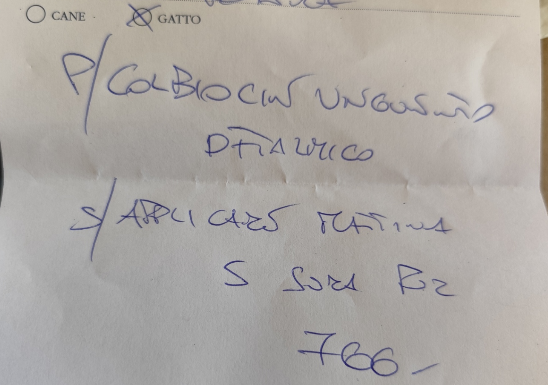 CANE GATTO
P/ COLBIOCIN UNGUENTO
OFTALMICO
S/ APPLICARE MATTINA
E SERA PER
7GG